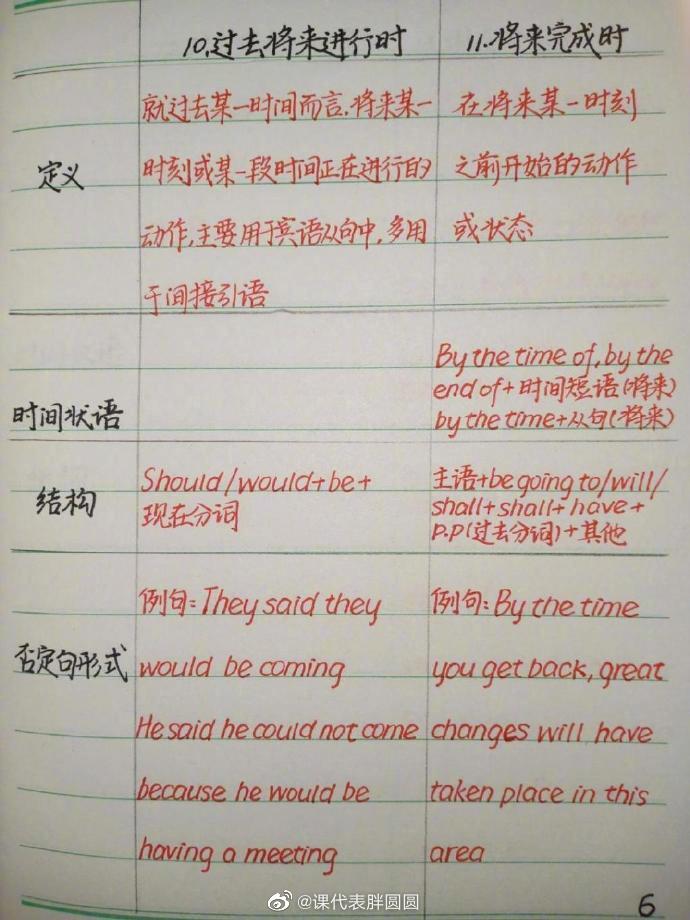 10.过去将来进行时
11.将来完成时
定义
就过去某一时间而言,将来某一
时刻或某一段时间正在进行的
动作,主要用于宾语从句中,多用
于间接引语
在将来某一时刻
之前开始的动作
或状态
时间状语
By the time of, by the
end of+时间短语(将来)
by the time+从句(将来)
结构
Should/would+be+
现在分词
主语+be going to/will/
shall+shall+have+
p.p(过去分词)+其他
否定句形式
例句:They said they
would be coming
He said he could not come
because he would be
having a meeting
例句:By the time
you get back, great
changes will have
taken place in this
area
@课代表胖圆圆
6